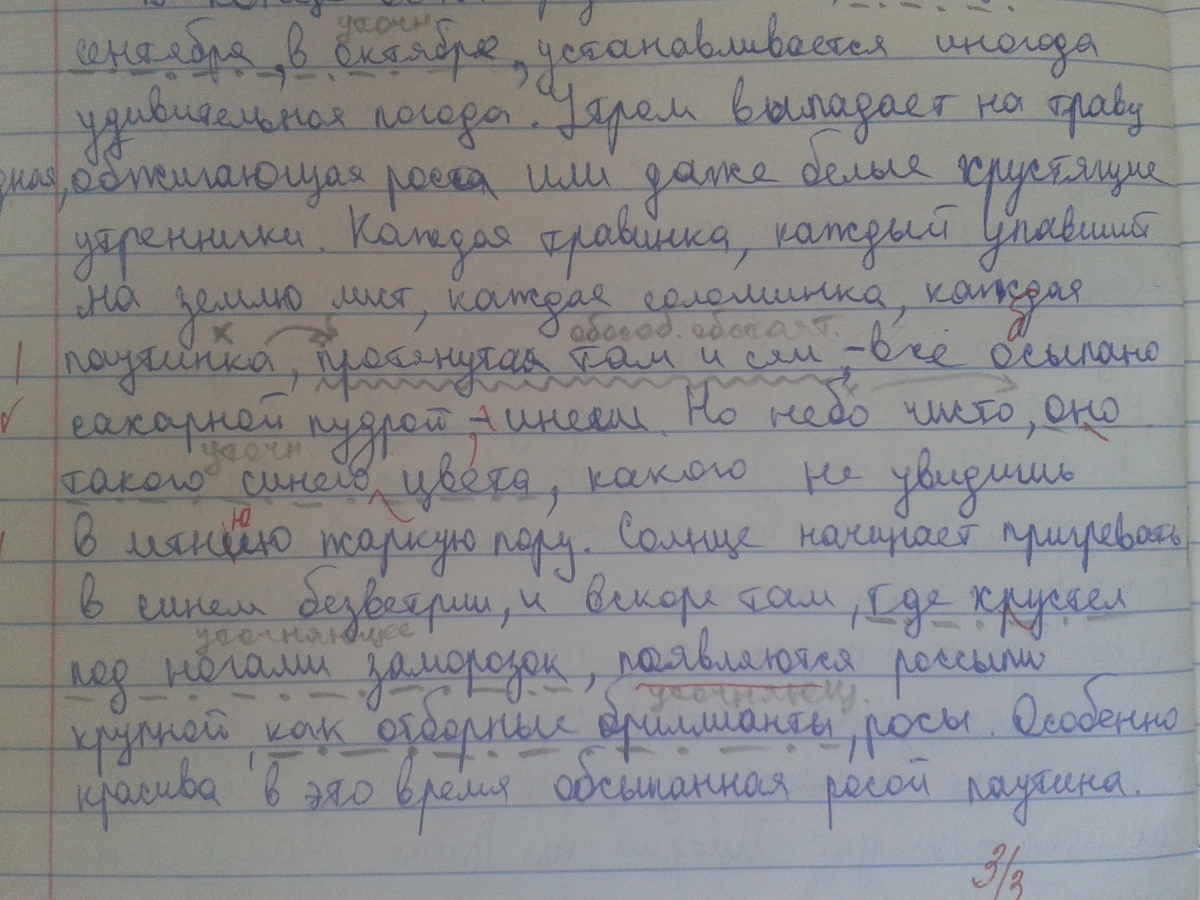 уточн.
сентября, в октябре, устанавливается иногда
удивительная погода. Утрем выпадает на траву
дная, обжигающая роса или даже белые хрустящие
утренники. Каждая травинка, каждый упавший
на землю лист, каждая соломинка, каждая
х обособ. обстоят. б
паутинка, протянутая там и сям, - всё осыпано
сахарной пудрой - инеем. Но небо чисто, оно
уточн.
такого синего цвета, какого не увидишь
ю
в летнюю жаркую пору. Солнце начинает пригревать
в синем безветрии, и вскоре там, где хрустел
уточняющее
под ногами заморозок, появляются россыпи
уточняющ.
крупной, как отборные бриллианты, росы. Особенно
красива в это время обсыпанная росой паутина.
3/3